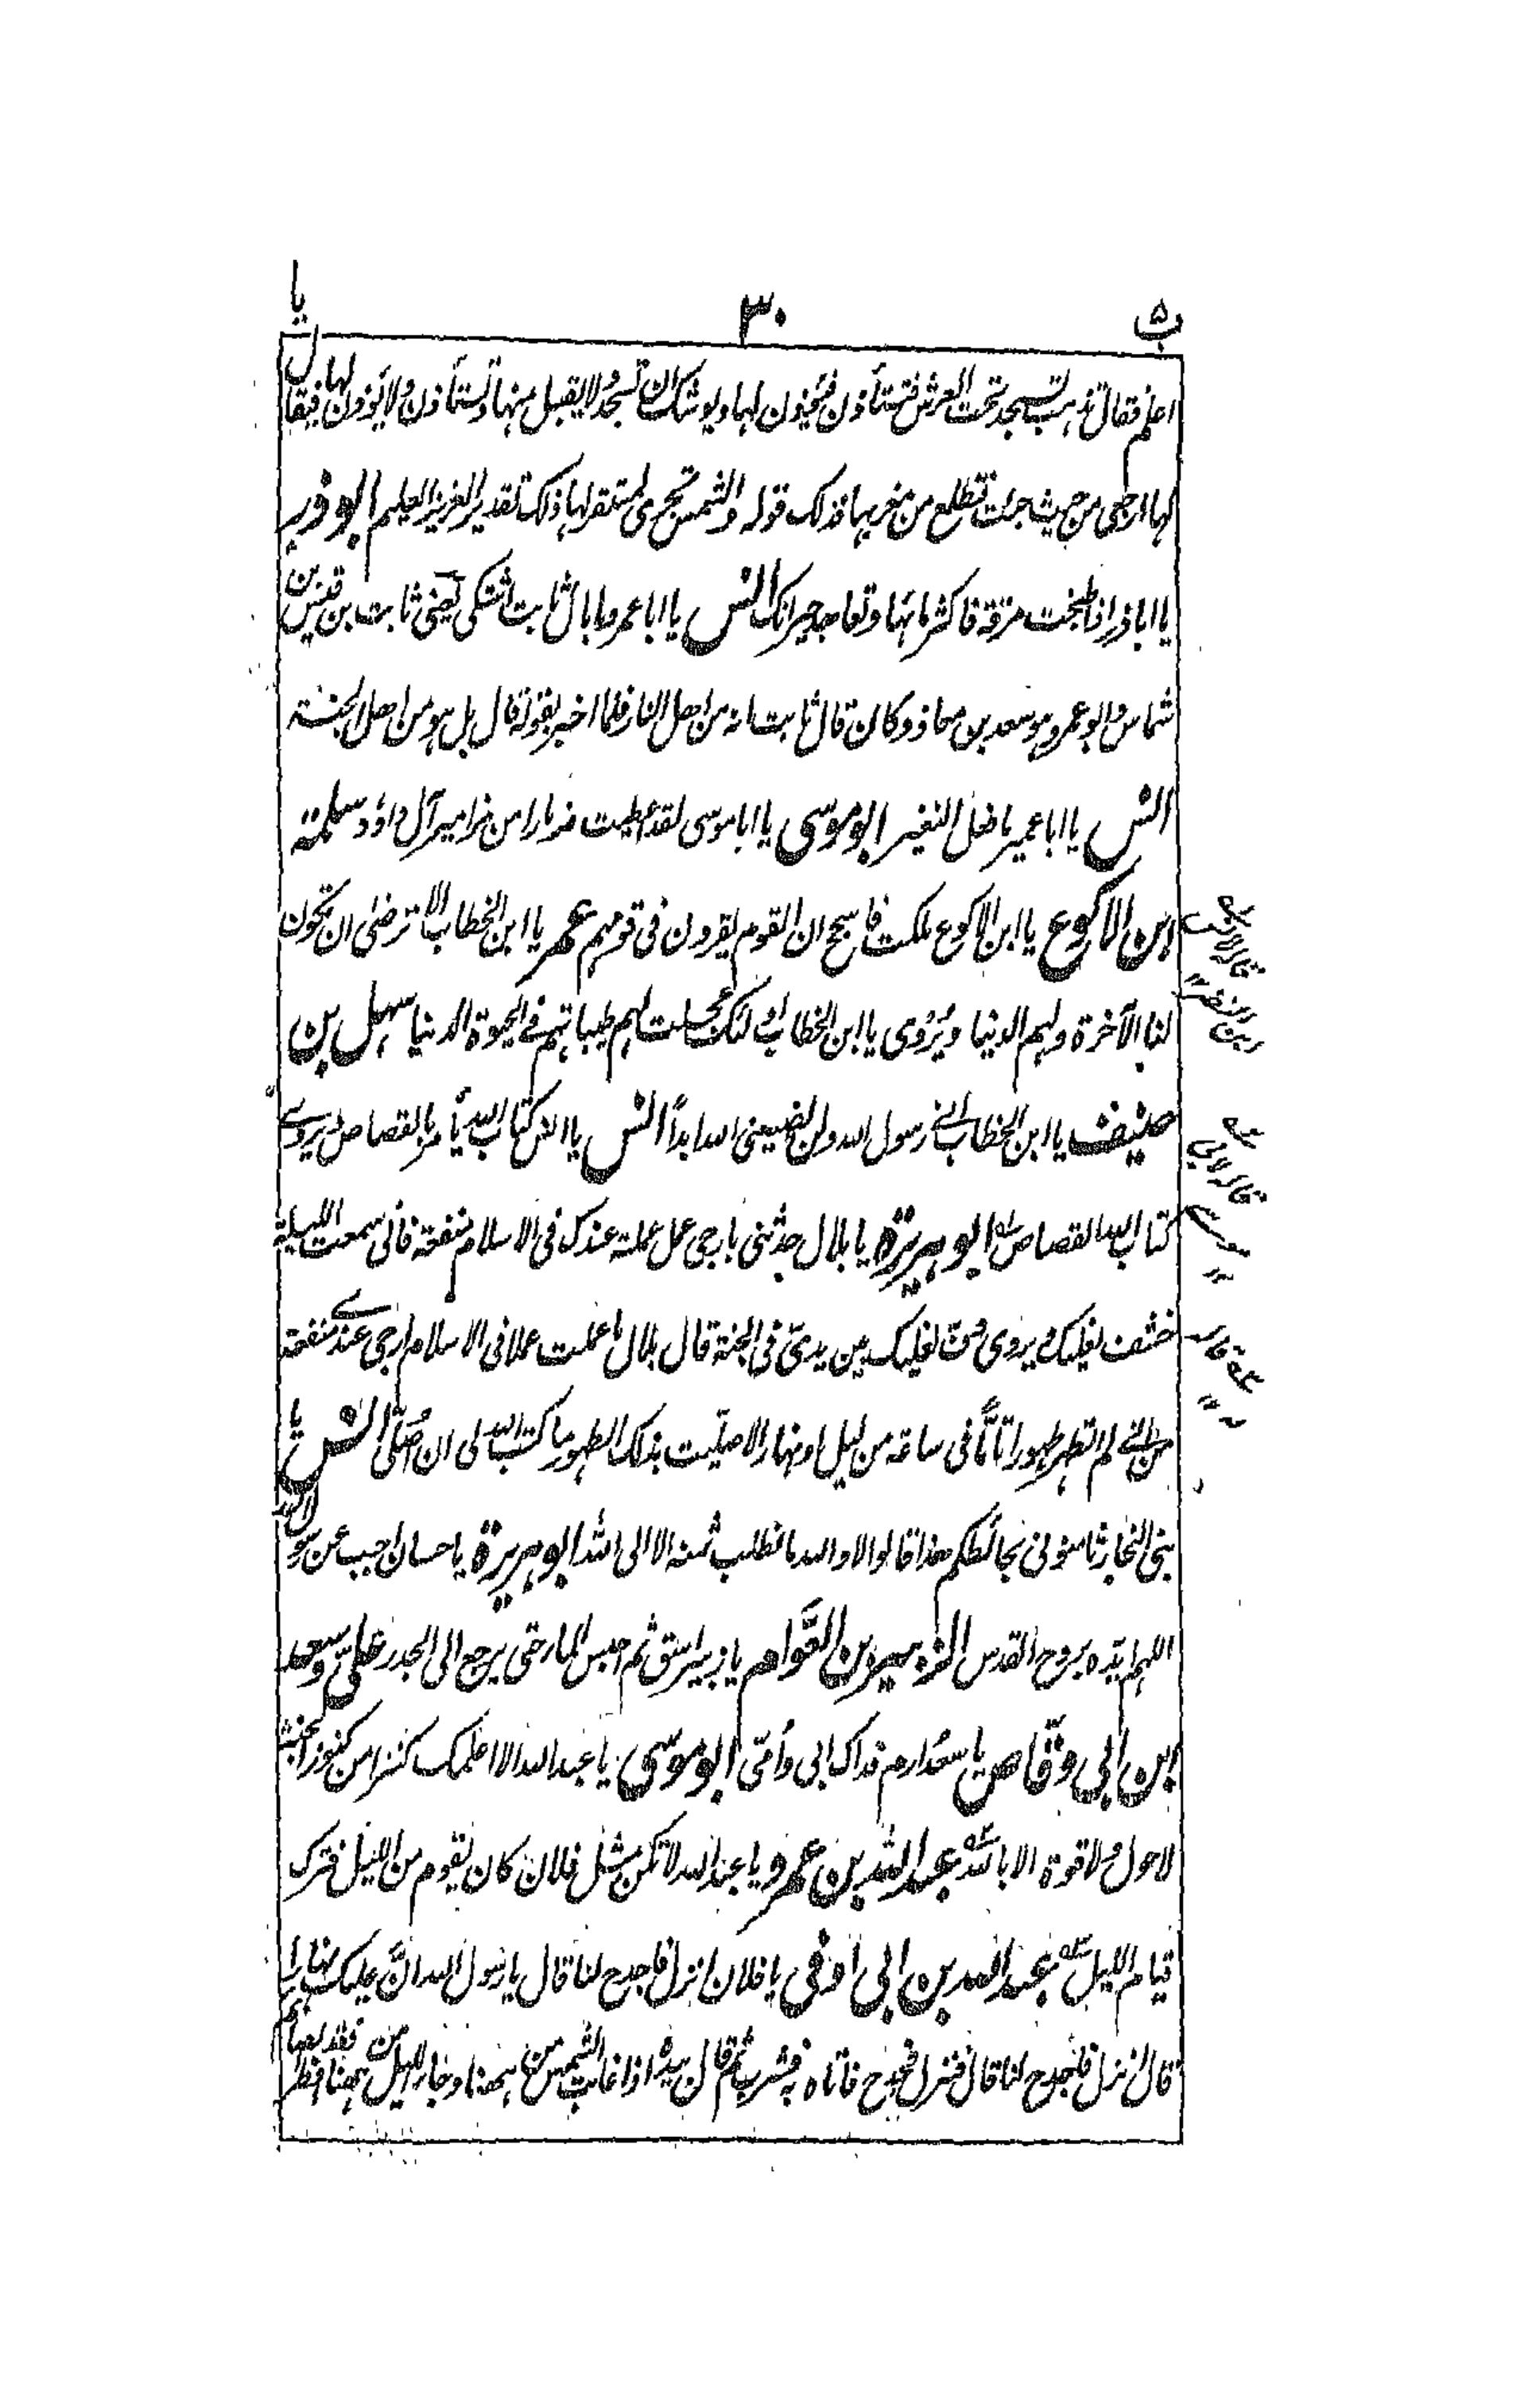 ب ۵ ۳۰ يا
اعلم فقال تذهب تسجد تحت العرش فتستأذن فيؤذن لها ويوشك ان تسجد ولا يقبل منها وتستأذن ولا يؤذن لها فيقال
لها ارجعى من حيث جئت تطلع من مغربها فذلك قوله والشمس تجرى لمستقر لها ذلك تقدير العزيز العليم ابو ذر
يا ابا ذر اذا طبخت مرقة فاكثر ماءها وتعاهد جيرانك انس يا ابا عمرو ما بال ثابت اشتكى يعنى ثابت بن قيس بن
شماس وابو عمرو هو سعد بن معاذ وكان قال ثابت انه من اهل النار فلما اخبر بقوله قال بل هو من اهل الجنة
انس يا ابا عمير ما فعل النغير ابو موسى يا ابا موسى لقد اعطيت مزمارا من مزامير آل داؤد سلمة
ابن الاكوع يا ابن الاكوع ملكت فاسجح ان القوم يقرون فى قومهم عمر يا ابن الخطاب الا ترضى ان تكون
لنا الآخرة ولهم الدنيا ويروى يا ابن الخطاب اولئك عجلت لهم طيباتهم فى الحيوة الدنيا سهل بن
حنيف يا ابن الخطاب انى رسول الله ولن يضيعنى الله ابدًا انس يا انس كتاب الله يأمر بالقصاص ويروى
كتاب الله القصاص ابو هريرة يا بلال حدثنى بارجى عمل عملته عندك فى الاسلام منفعة فانى سمعت الليلة
خشف نعليك ويروى دف نعليك بين يدىّ فى الجنة قال بلال ما عملت عملا فى الاسلام ارجى عندى منفعة
من انى لم اتطهر طهورا تامّا فى ساعة من ليل او نهار الا صليت بذلك الطهور ما كتب الله لى ان اصلّى انس يا
بنى النجار ثامنونى بحائطكم هذا قالوا لا والله ما نطلب ثمنه الا الى الله ابو هريرة يا حسان اجب عن رسول الله
اللهم ايّده بروح القدس الزبير بن العوّام يا زبير اسق ثم احبس الماء حتى يرجع الى الجدر علىّ وسعد
ابن ابى وقّاص يا سعد ارم فداك ابى وامّى ابو موسى يا عبد الله الا اعلمك كنزا من كنوز الجنة
لا حول ولا قوة الا بالله عبد الله بن عمرو يا عبد الله لا تكن مثل فلان كان يقوم من الليل فترك
قيام الليل عبد الله بن ابى اوفى يا فلان انزل فاجدح لنا قال يا رسول الله انّ عليك نهارا
قال انزل فاجدح لنا قال فنزل فجدح فاتاه به فشرب ثم قال بيده اذا غابت الشمس من ههنا وجاء الليل من ههنا فقد افطر الصائم